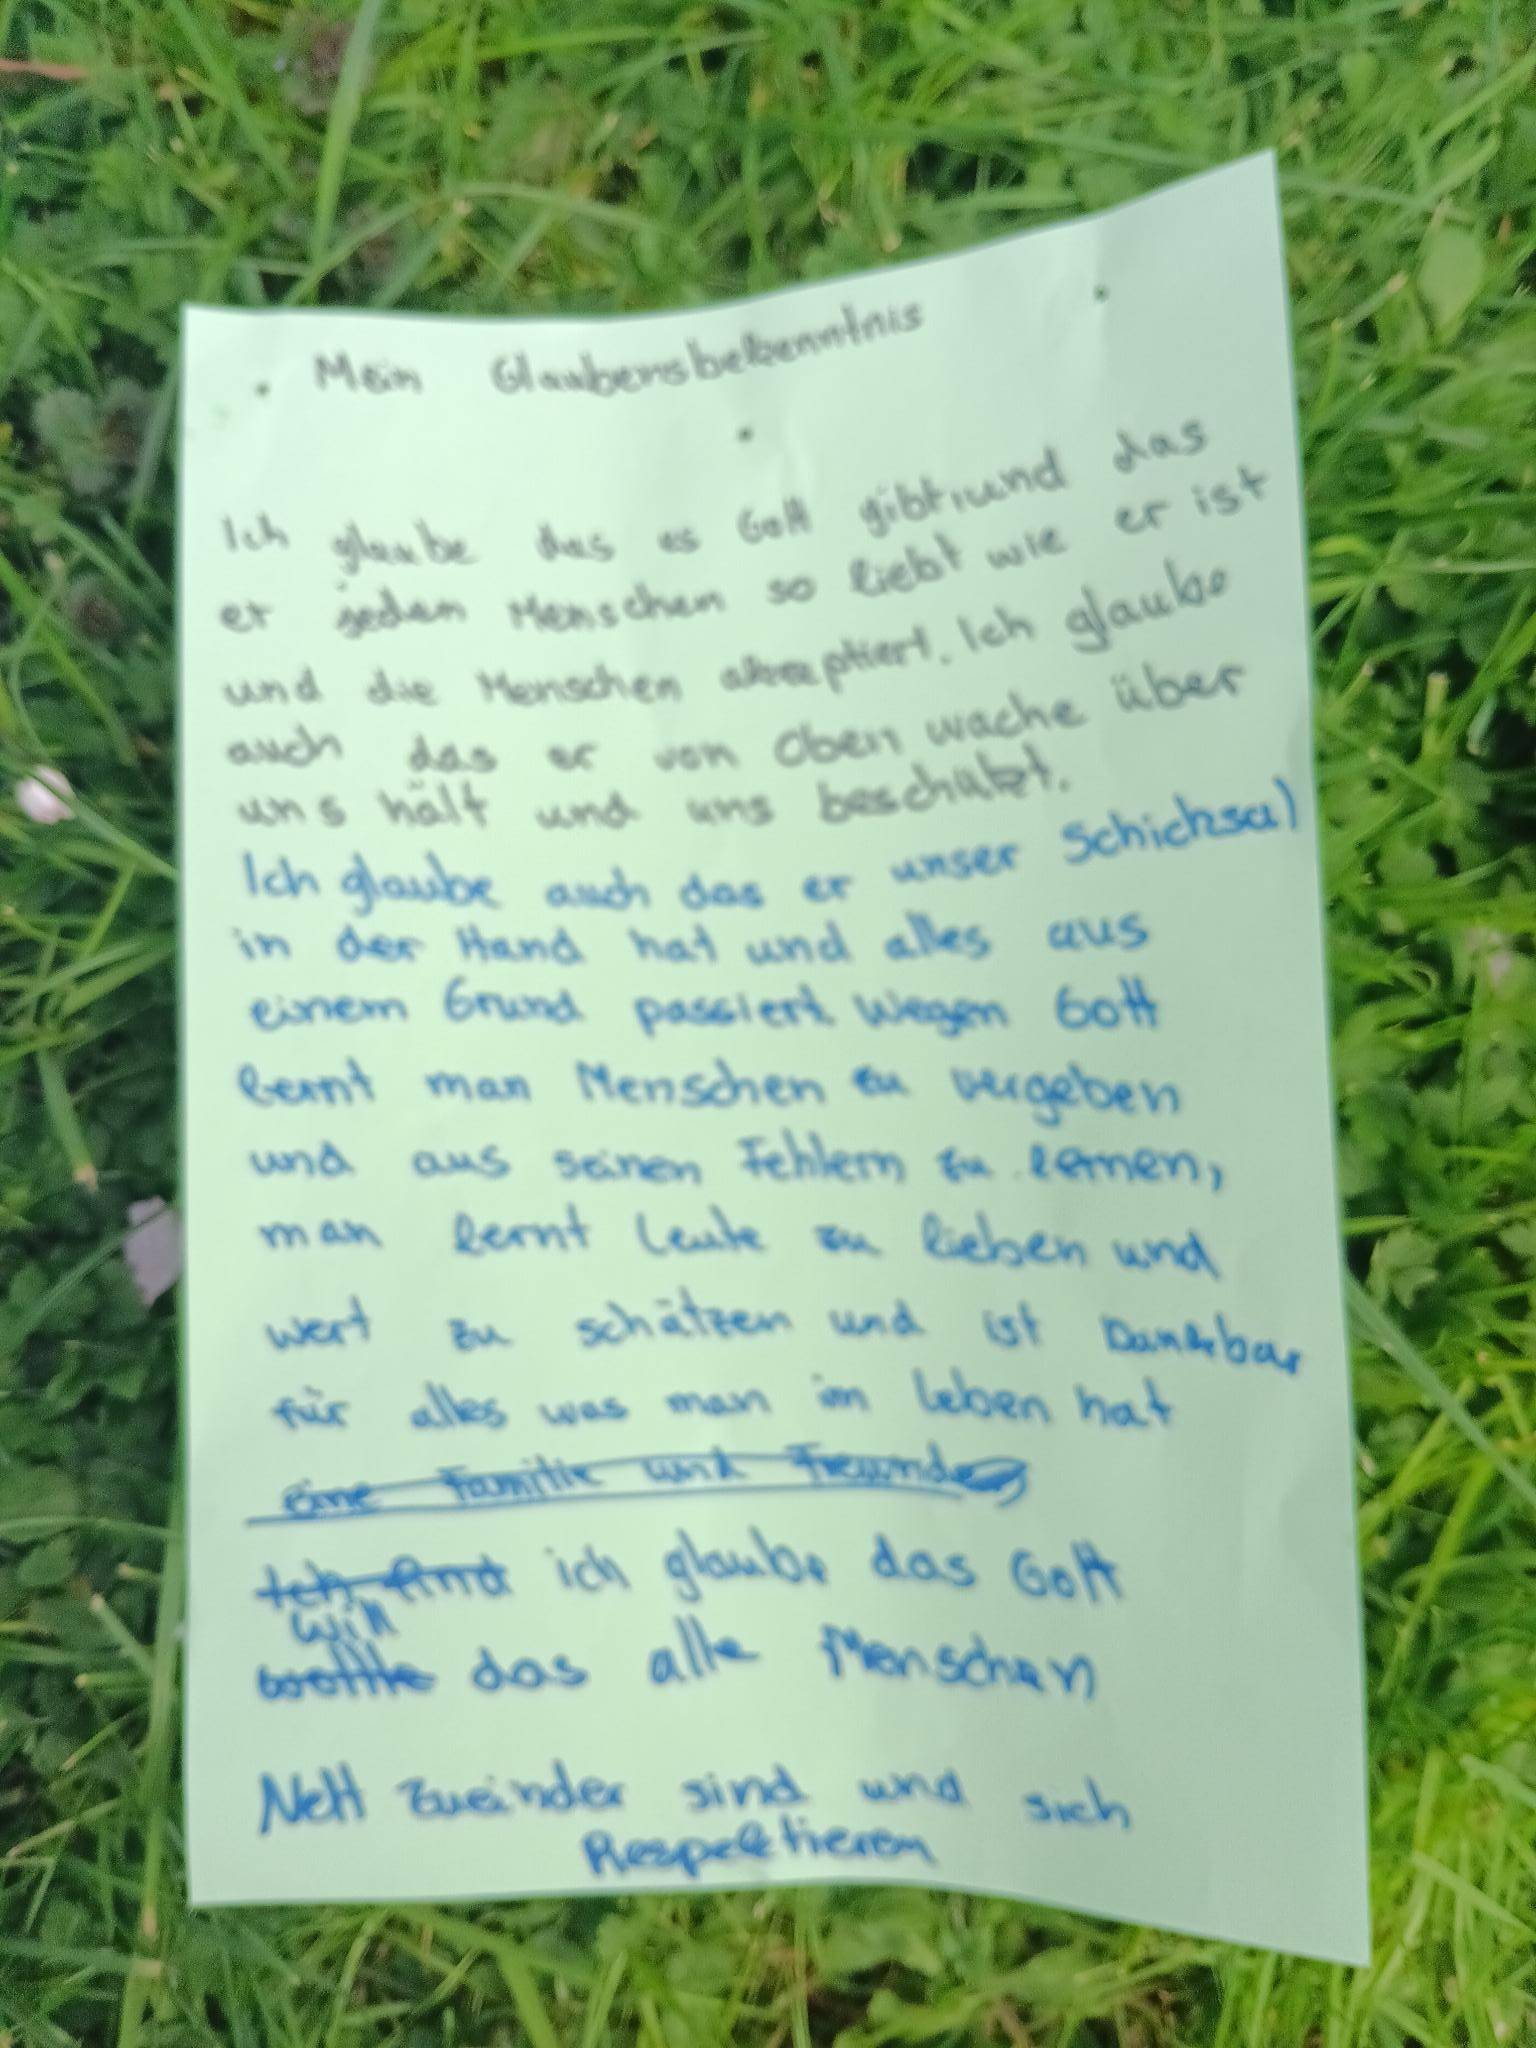 Mein Glaubensbekenntnis
Ich glaube das es Gott gibt, und das
er jeden Menschen so liebt wie er ist
und die Menschen akzeptiert. Ich glaube
auch das er von Oben wache über
uns hält und uns beschützt.
Ich glaube auch das er unser Schicksal
in der Hand hat und alles aus
einem Grund passiert. Wegen Gott
lernt man Menschen zu vergeben
und aus seinen Fehlern zu lernen,
man lernt Leute zu lieben und
wert zu schätzen und ist Dankbar
für alles was man im Leben hat
eine Familie und Freunde
Ich find ich glaube das Gott
will
wollte das alle Menschen
Nett zueinder sind und sich
Respektieren